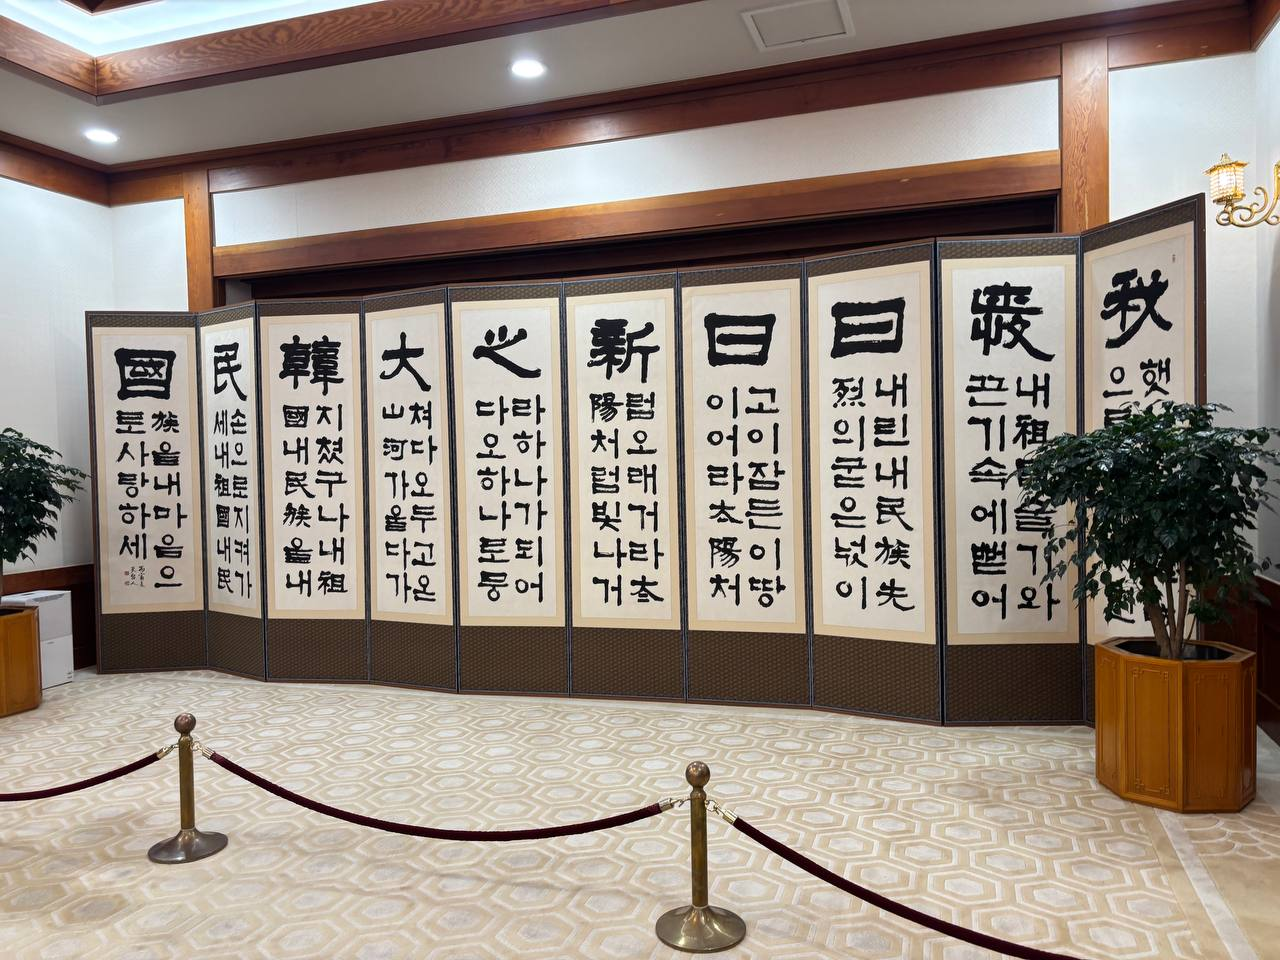 秋
햇
으
내祖
슬기와
끈기속에뻗어
日
내린내民族先
烈의굳은넋이
日
고이잠든이땅
이어라太陽처
新
럼오래거라太
陽처럼빛나거
之
라하나가되어
다오하나로뭉
大
쳐다오두고온
山河가울다가
韓
지쳤구나내祖
國내民族을내
民
손으로지켜가
세내祖國내民
國
族을내마음으
로사랑하세